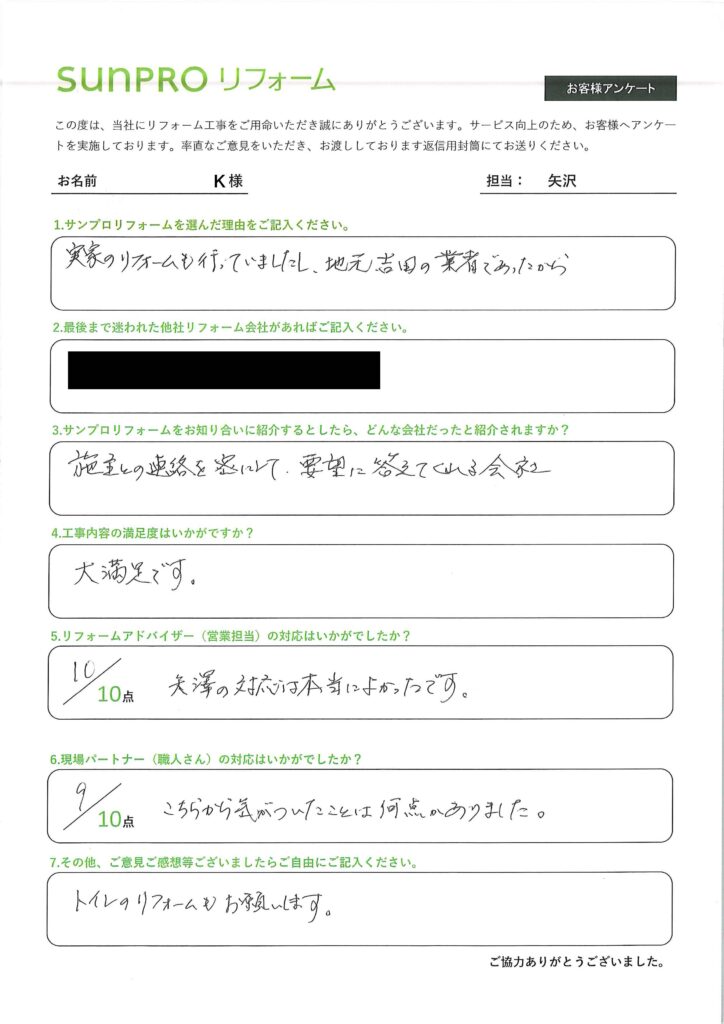 SUNPRO リフォーム
お客様アンケート
この度は、当社にリフォーム工事をご用命いただき誠にありがとうございます。サービス向上のため、お客様へアンケー
トを実施しております。率直なご意見をいただき、お渡ししております返信用封筒にてお送りください。
お名前 K 様 担当： 矢沢
1.サンプロリフォームを選んだ理由をご記入ください。
実家のリフォームも行っていましたし、地元吉田の業者であったから
2.最後まで迷われた他社リフォーム会社があればご記入ください。
3.サンプロリフォームをお知り合いに紹介するとしたら、どんな会社だったと紹介されますか？
施主との連絡を密にして、要望に答えてくれる会社
4.工事内容の満足度はいかがですか？
大満足です。
5.リフォームアドバイザー（営業担当）の対応はいかがでしたか？
10/10点 矢澤の対応は本当によかったです。
6.現場パートナー（職人さん）の対応はいかがでしたか？
9/10点 こちらから気がついたことは何点かありました。
7.その他、ご意見ご感想等ございましたらご自由にご記入ください。
トイレのリフォームもお願いします。
ご協力ありがとうございました。